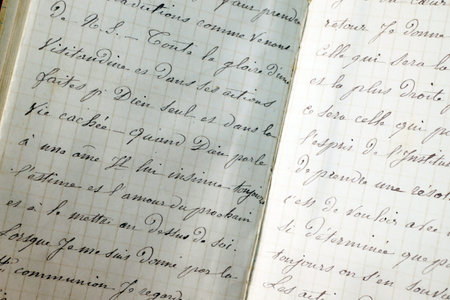 pour prendre
traditions comme venons
de N. S. — Toute la gloire d'une
Visitandine est dans ses actions
faites pr Dieu seul et dans la
vie cachée — quand Dieu parle
à une âme Il lui insinue toujours
l'estime et l'amour du prochain
et à le mettre au dessus de soi.
Lorsque Je me suis donné par la
communion. Je regarde
cœur
retour Je donne
Celle qui sera la
et la plus droite
ce sera celle qui p
l'esprit de l'Institut
de prendre une réso
c'est de vouloir avec
si déterminée que p
toujours on s'en souv
Les acti